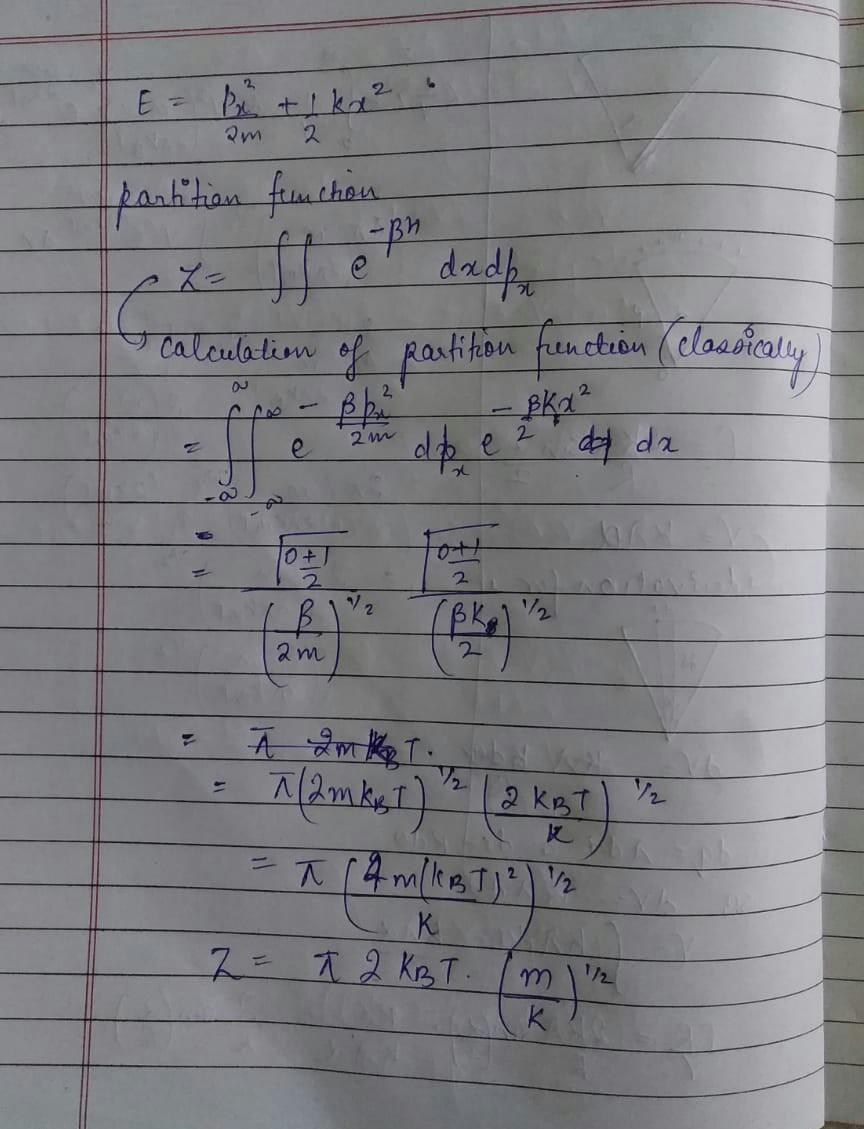 E = pₓ²/2m + 1/2 kx²
partition function
Z = ∫∫ e^(-βH) dx dpₓ
calculation of partition function (classically)
= ∫_{-∞}^{∞} ∫_{-∞}^{∞} e^(-βpₓ²/2m) dpₓ e^(-βKx²/2) dx
=
= Γ((0+1)/2) / (β/2m)^(1/2) Γ((0+1)/2) / (βK/2)^(1/2)
= π 2m k_B T.
= π (2m k_B T)^(1/2) (2 K_B T / K)^(1/2)
= π (4m (k_B T)² / K)^(1/2)
Z = π 2 K_B T. (m/K)^(1/2)